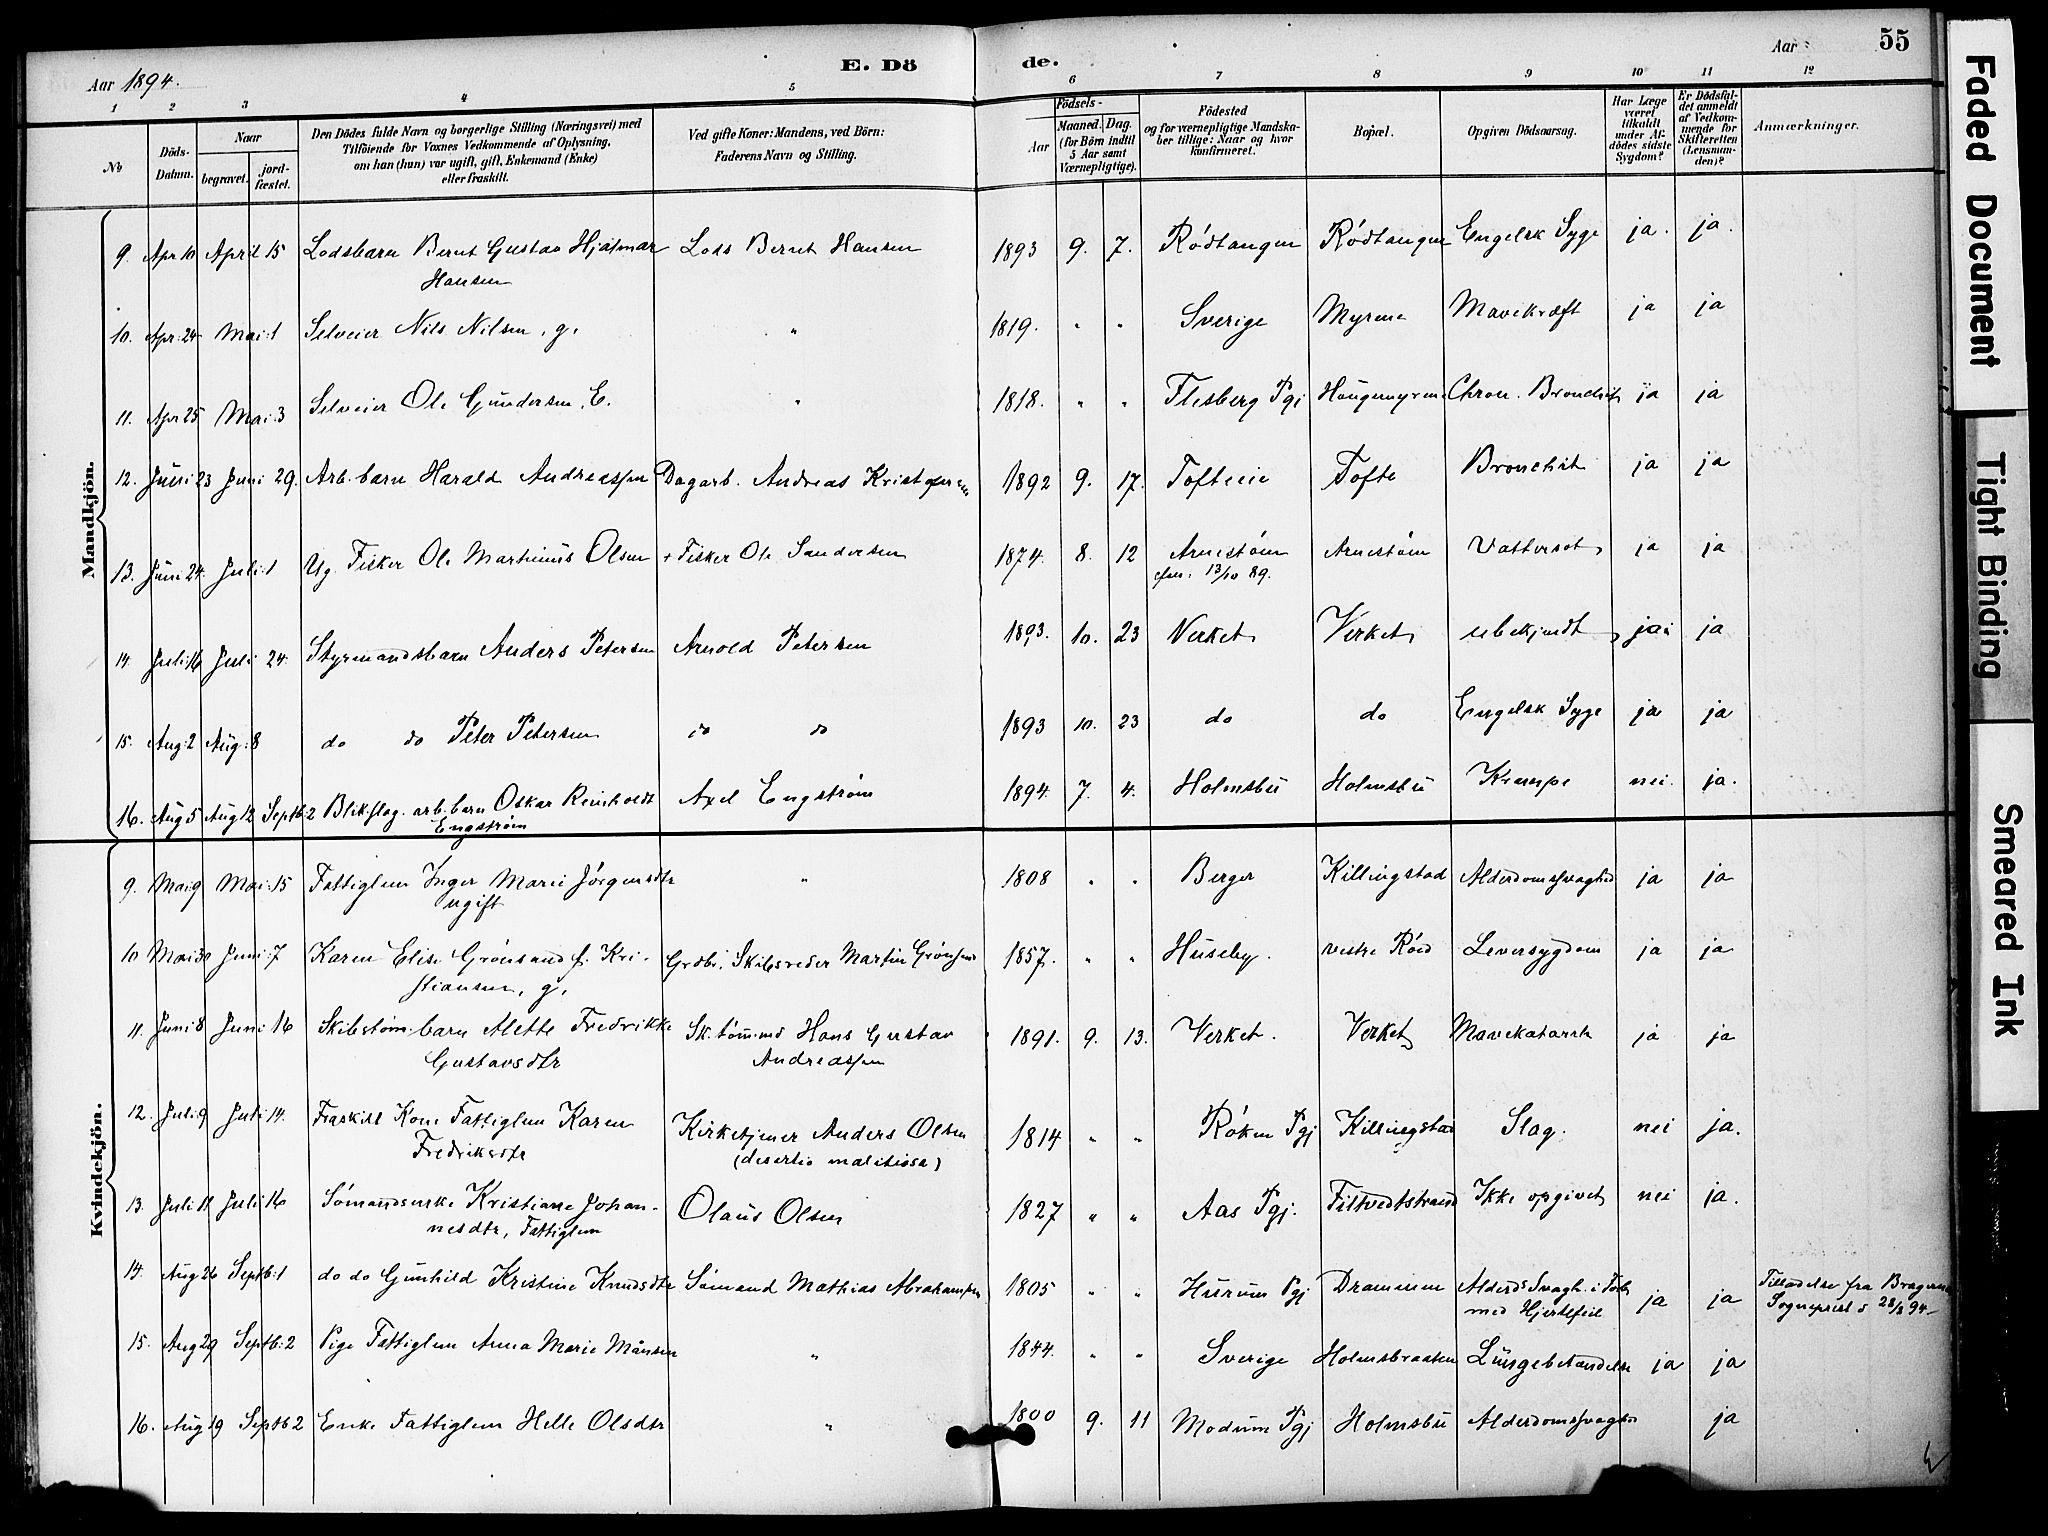 Aar 1894. E. Dö de. Aar 55
1 2 3 4 5 6 7 8 9 10 11 12
No
Döds-Datum.
Naar
begravet.
jord-fæstet.
Den Dödes fulde Navn og borgerlige Stilling (Næringsvei) med
Tilföiende for Voxnes Vedkommende af Oplysning,
om han (hun) var ugift, gift, Enkemand (Enke)
eller fraskilt.
Ved gifte Koner: Mandens, ved Börn:
Faderens Navn og Stilling.
Födsels-
Aar
Maaned. Dag.
(for Börn indtil
5 Aar samt
Værnepligtige).
Födested
og for værnepligtige Mandska-
ber tillige: Naar og hvor
konfirmeret.
Bopæl.
Opgiven Dödsaarsag.
Har Læge
været
tilkaldt
under Af-
dödes sidste
Sygdom?
Er Dödsfal-
det anmeldt
af Vedkom-
mende for
Skifteretten
(Lensman-
den)?
Anmærkninger.
Mandkjön.
9. Apr 10 April 15 Lodsbarn Bernt Gustav Hjalmar Lods Bernt Hansen 1893 9. 7. Rödtangen Rödtangen Engelsk Syge ja. ja.
Hansen
10. Apr: 24 Mai: 1 Selveier Nils Nilsen, g. " 1819. " " Sverige Myrene Mavekræft ja ja
11. Apr 25 Mai: 3 Selveier Ole Gundersen, E. " 1818. " " Flesberg Pgj Haugemyrene Chron. Bronchit ja ja
12. Juni 23 Juni 29. Arb. barn Harald Andreassen Dagarb. Andreas Kristofersen 1892 9. 17. Tofteeie Tofte Bronchit ja ja
13. Juni 24. Juli: 1 Ug. Fisker Ole Martinius Olsen + Fisker Ole Sandersen 1874. 8. 12 Arnestøm Arnestøm Vattersot ja ja
13/10 89.
14. Juli: 16 Juli 24. Styrmandsbarn Anders Petersen Arnold Petersen 1893. 10. 23 Verket Verket ubekjendt ja ja
15. Aug: 2 Aug: 8 do do Peter Petersen do do 1893 10. 23 do do Engelsk Syge ja ja
16. Aug 5 Aug 12 Septb 2 Blikslag. arb. barn Oskar Reinholdt Axel Engström 1894. 7. 4. Holmsbu Holmsbu Krampe nei. ja.
Engström
Kvindekjön.
9. Mai 9 Mai: 15 Fattiglem Inger Marie Jörgensdtr " 1808 " " Berger Killingstad Alderdomssvaghed ja ja
ugift
10 Mai 30 Juni: 7 Karen Elise Grönsand f. Kri- Grdbr. Skibsreder Martin Grönsand 1857. " " Huseby. vestre Röed Leversygdom ja ja
stiansen, g.
11. Juni 8 Juni 16 Skibstøm. barn Alette Fredrikke Sk. tømmd Hans Gustav 1891. 9. 13. Verket. Verket Mavekatarrh ja ja
Gustavsdtr Andreassen
12. Juli: 9 Juli: 14. Fraskilt Kone Fattiglem Karen Kirketjener Anders Olsen 1814 " " Röken Pgj Killingstad Slag. nei ja.
Fredriksdtr (desertio malitiosa)
13. Juli: 11 Juli: 16 Sömandsenke Kristiane Johan- Olaus Olsen 1827 " " Aas Pgj. Filtvedtstrand Ikke opgivet nei ja.
nesdtr, Fattiglem
14. Aug 26 Septb: 1 do do Gunhild Kristine Knudsdtr Sömand Mathias Abrahamsen 1805 " " Hurum Pgj Drammen Alderds Svagh. i Forb. ja ja Tilladelse fra Bragernes
med Hjertefeil Sogneprest d 28/8 94
15. Aug 29 Septb: 2 Pige Fattiglem Anna Marie Månsen " 1844. " " Sverige Holmsbraaten Lungebetændelse ja ja
16. Aug 19 Septb 2 Enke Fattiglem Helle Olsdtr " 1800 9. 11 Modum Pgj Holmsbu Alderdomssvaghed ja
Faded Document
Tight Binding
Smeared Ink